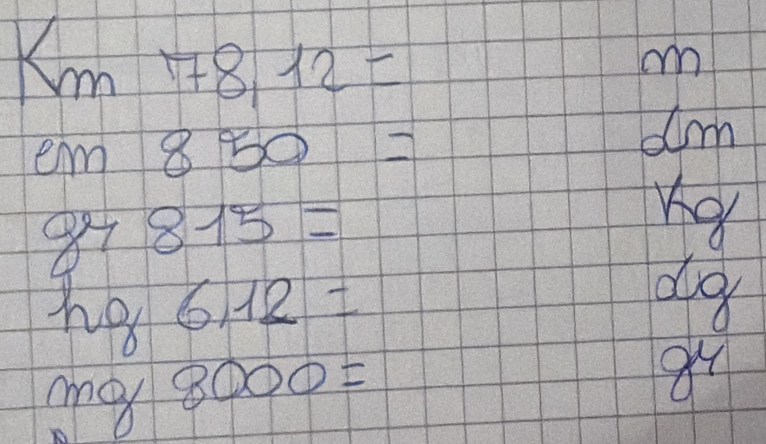 Km 78,12 = m
cm 850 = dm
gr 815 = Kg
hg 6,12 = dg
mg 8000 = gr